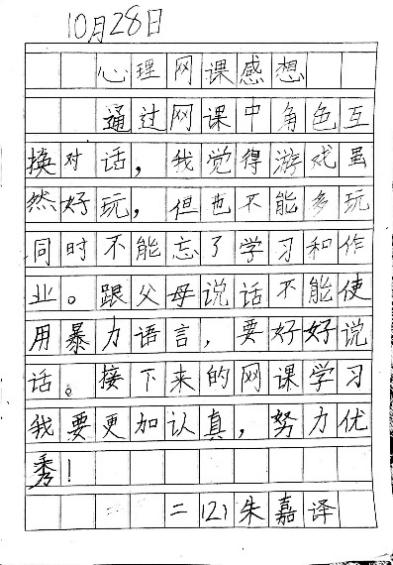 10月28日
心理网课感想
通过网课中角色互
换对话，我觉得游戏虽
然好玩，但也不能多玩
同时不能忘了学习和作
业。跟父母说话不能使
用暴力语言，要好好说
话。接下来的网课学习
我要更加认真，努力优
秀！
二（2）朱嘉译